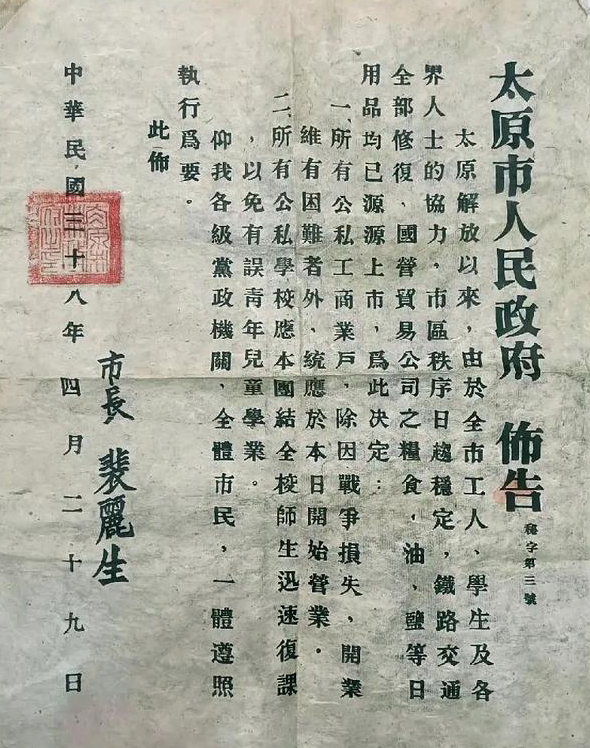 太原市人民政府 佈告
秘字第三號
太原解放以來，由於全市工人、學生及各
界人士的協力，市區秩序日趨穩定，鐵路交通
全部修復、國營貿易公司之糧食，油、鹽等日
用品均已源源上市，爲此决定：
一、所有公私工商業戶，除因戰爭損失、開業
維有困難者外、統應於本日開始營業．
二、所有公私學校應本團結全校師生迅速復課
，以免有誤靑年兒童學業。
仰我各級黨政機關，全體市民，一體遵照
執行爲要。
此佈
市長 裴麗生
中華民國三十八年四月二十九日